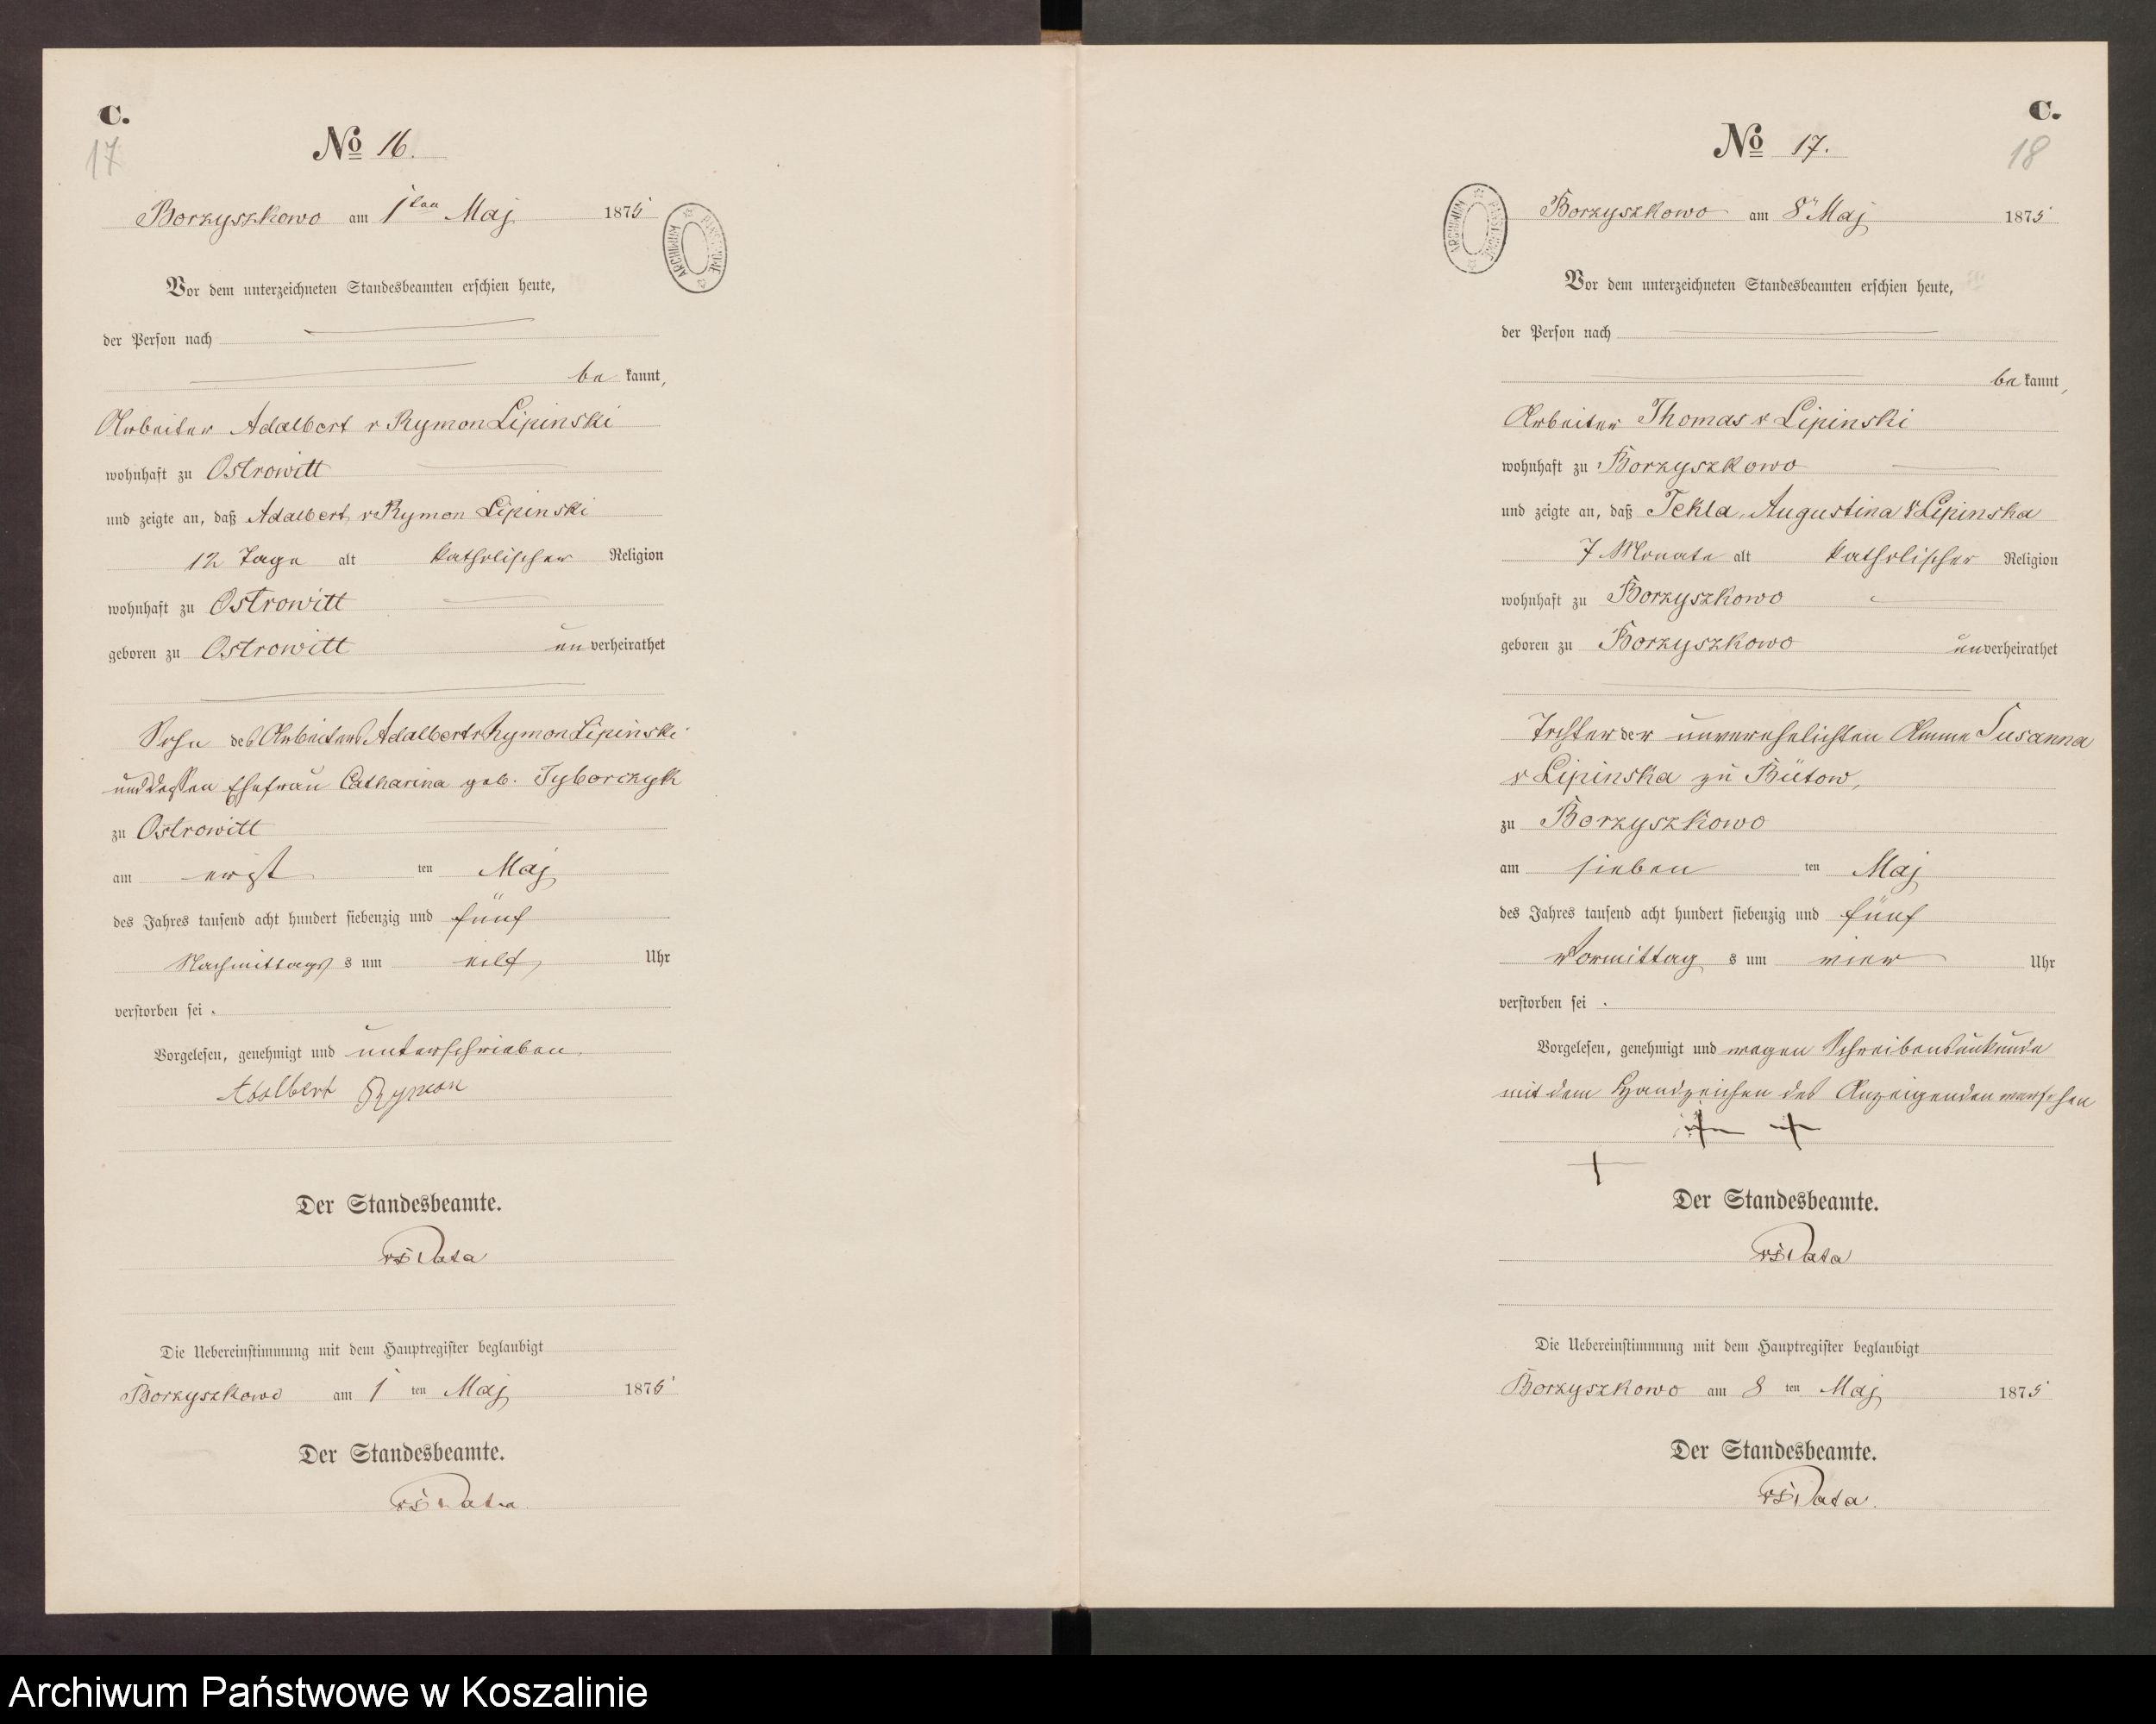 C.
17
No 16.
Borzyszkowo am 1ten Maj 1875
ARCHIWUM PAŃSTWOWE
Vor dem unterzeichneten Standesbeamten erschien heute,
der Person nach
be kannt,
Arbeiter Adalbert v Rymon Lipinski
wohnhaft zu Ostrowitt
und zeigte an, daß Adalbert v Rymon Lipinski
12 Tage alt katholischer Religion
wohnhaft zu Ostrowitt
geboren zu Ostrowitt unverheirathet
Sohn des Arbeiters Adalbert v Rymon Lipinski
und dessen Ehefrau Catharina geb. Tyborczyk
zu Ostrowitt
am erst ten Maj
des Jahres tausend acht hundert siebenzig und fünf
Nachmittags um eilf Uhr
verstorben sei.
Vorgelesen, genehmigt und unterschrieben.
Adalbert Rymon
Der Standesbeamte.
Die Uebereinstimmung mit dem Hauptregister beglaubigt
Borzyszkowo am 1 ten Maj 1875
Der Standesbeamte.
C.
18
No 17.
Borzyszkowo am 8 Maj 1875
ARCHIWUM PAŃSTWOWE
Vor dem unterzeichneten Standesbeamten erschien heute,
der Person nach
be kannt,
Arbeiter Thomas v Lipinski
wohnhaft zu Borzyszkowo
und zeigte an, daß Tekla, Augustina v Lipinska
7 Monate alt katholischer Religion
wohnhaft zu Borzyszkowo
geboren zu Borzyszkowo unverheirathet
Tochter der unverehelichten Amme Susanna
v Lipinska zu Bütow,
zu Borzyszkowo
am sieben ten Maj
des Jahres tausend acht hundert siebenzig und fünf
Vormittag s um vier Uhr
verstorben sei.
Vorgelesen, genehmigt und wegen Schreibensunkunde
mit dem Handzeichen des Anzeigenden versehen
+ +
+
Der Standesbeamte.
Die Uebereinstimmung mit dem Hauptregister beglaubigt
Borzyszkowo am 8 ten Maj 1875
Der Standesbeamte.
Archiwum Państwowe w Koszalinie